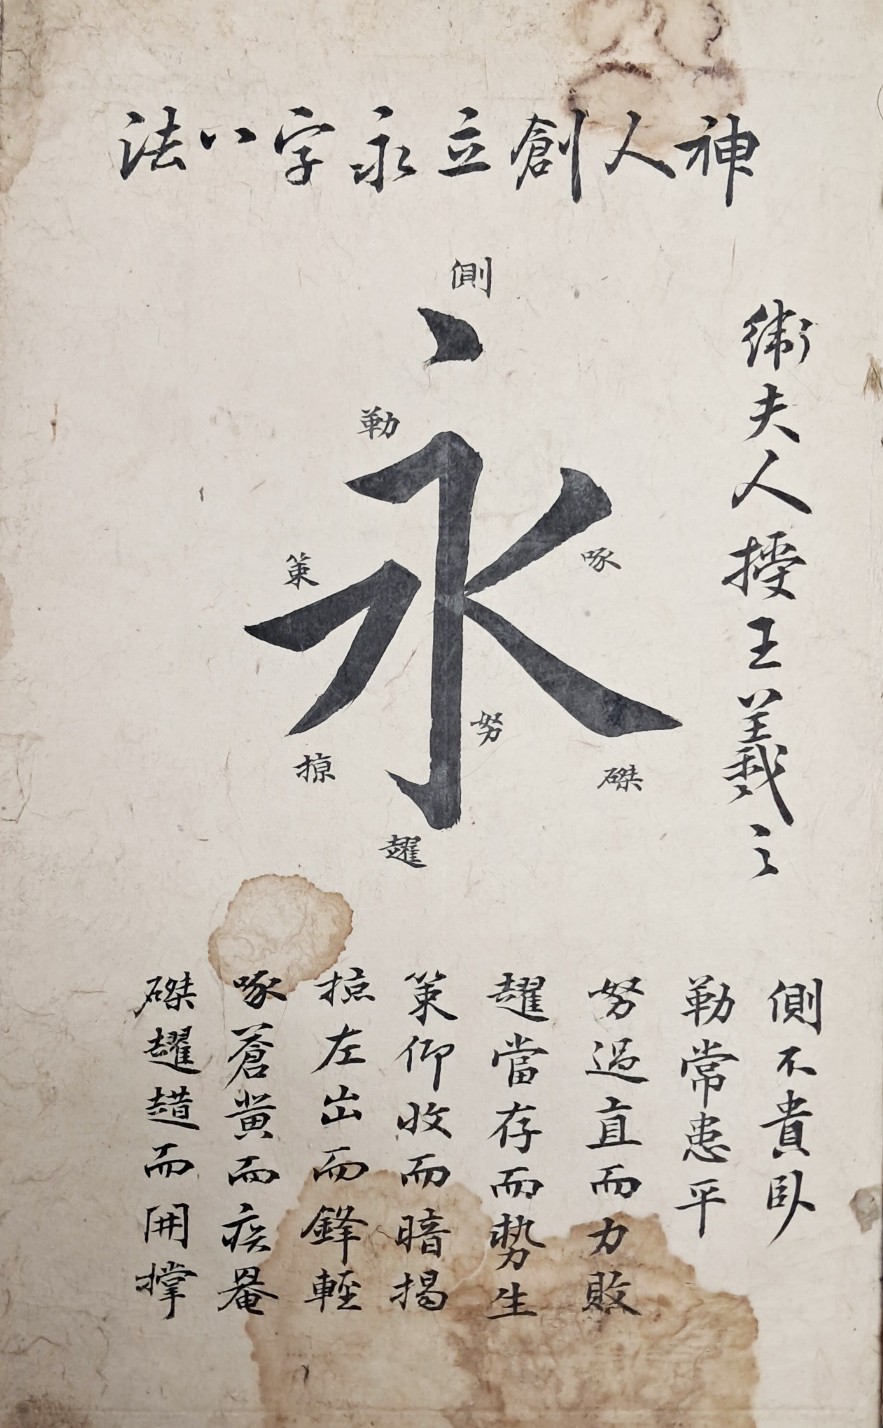 神人創立永字八法
衛夫人授王羲之
側
勒
策
啄
努
掠
磔
趯
側不貴臥
勒常患平
努過直而力敗
趯當存而勢生
策仰收而暗揭
掠左出而鋒輕
啄蒼黄而疾罨
磔趯趞而開撑